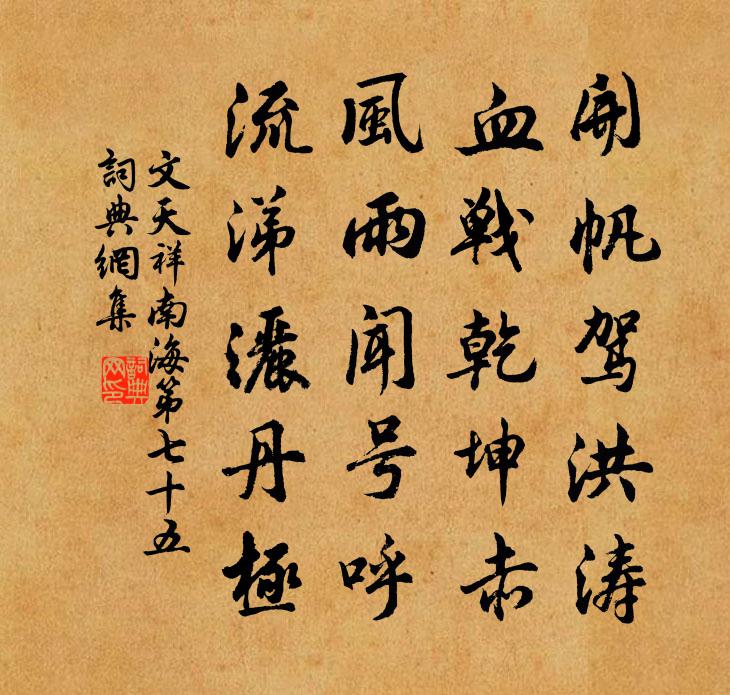 開帆駕洪涛
血戦乾坤赤
風雨聞号呼
流涕灑丹極
文天祥南海第七十五
詞典網集
詞典网印